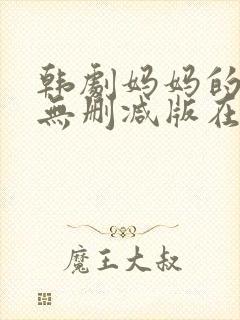 韩劇妈妈的
無删减版在
魔王大叔